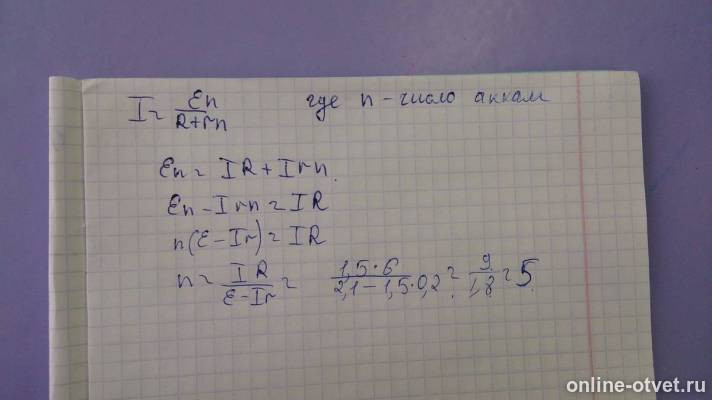 I = εn / (R+rn) где n - число аккам
εn = IR + Irn.
εn - Irn = IR
n(ε - Ir) = IR
n = IR / (ε - Ir) = 1,5·6 / (2,1 - 1,5·0,2) = 9 / 1,8 = 5
online-otvet.ru